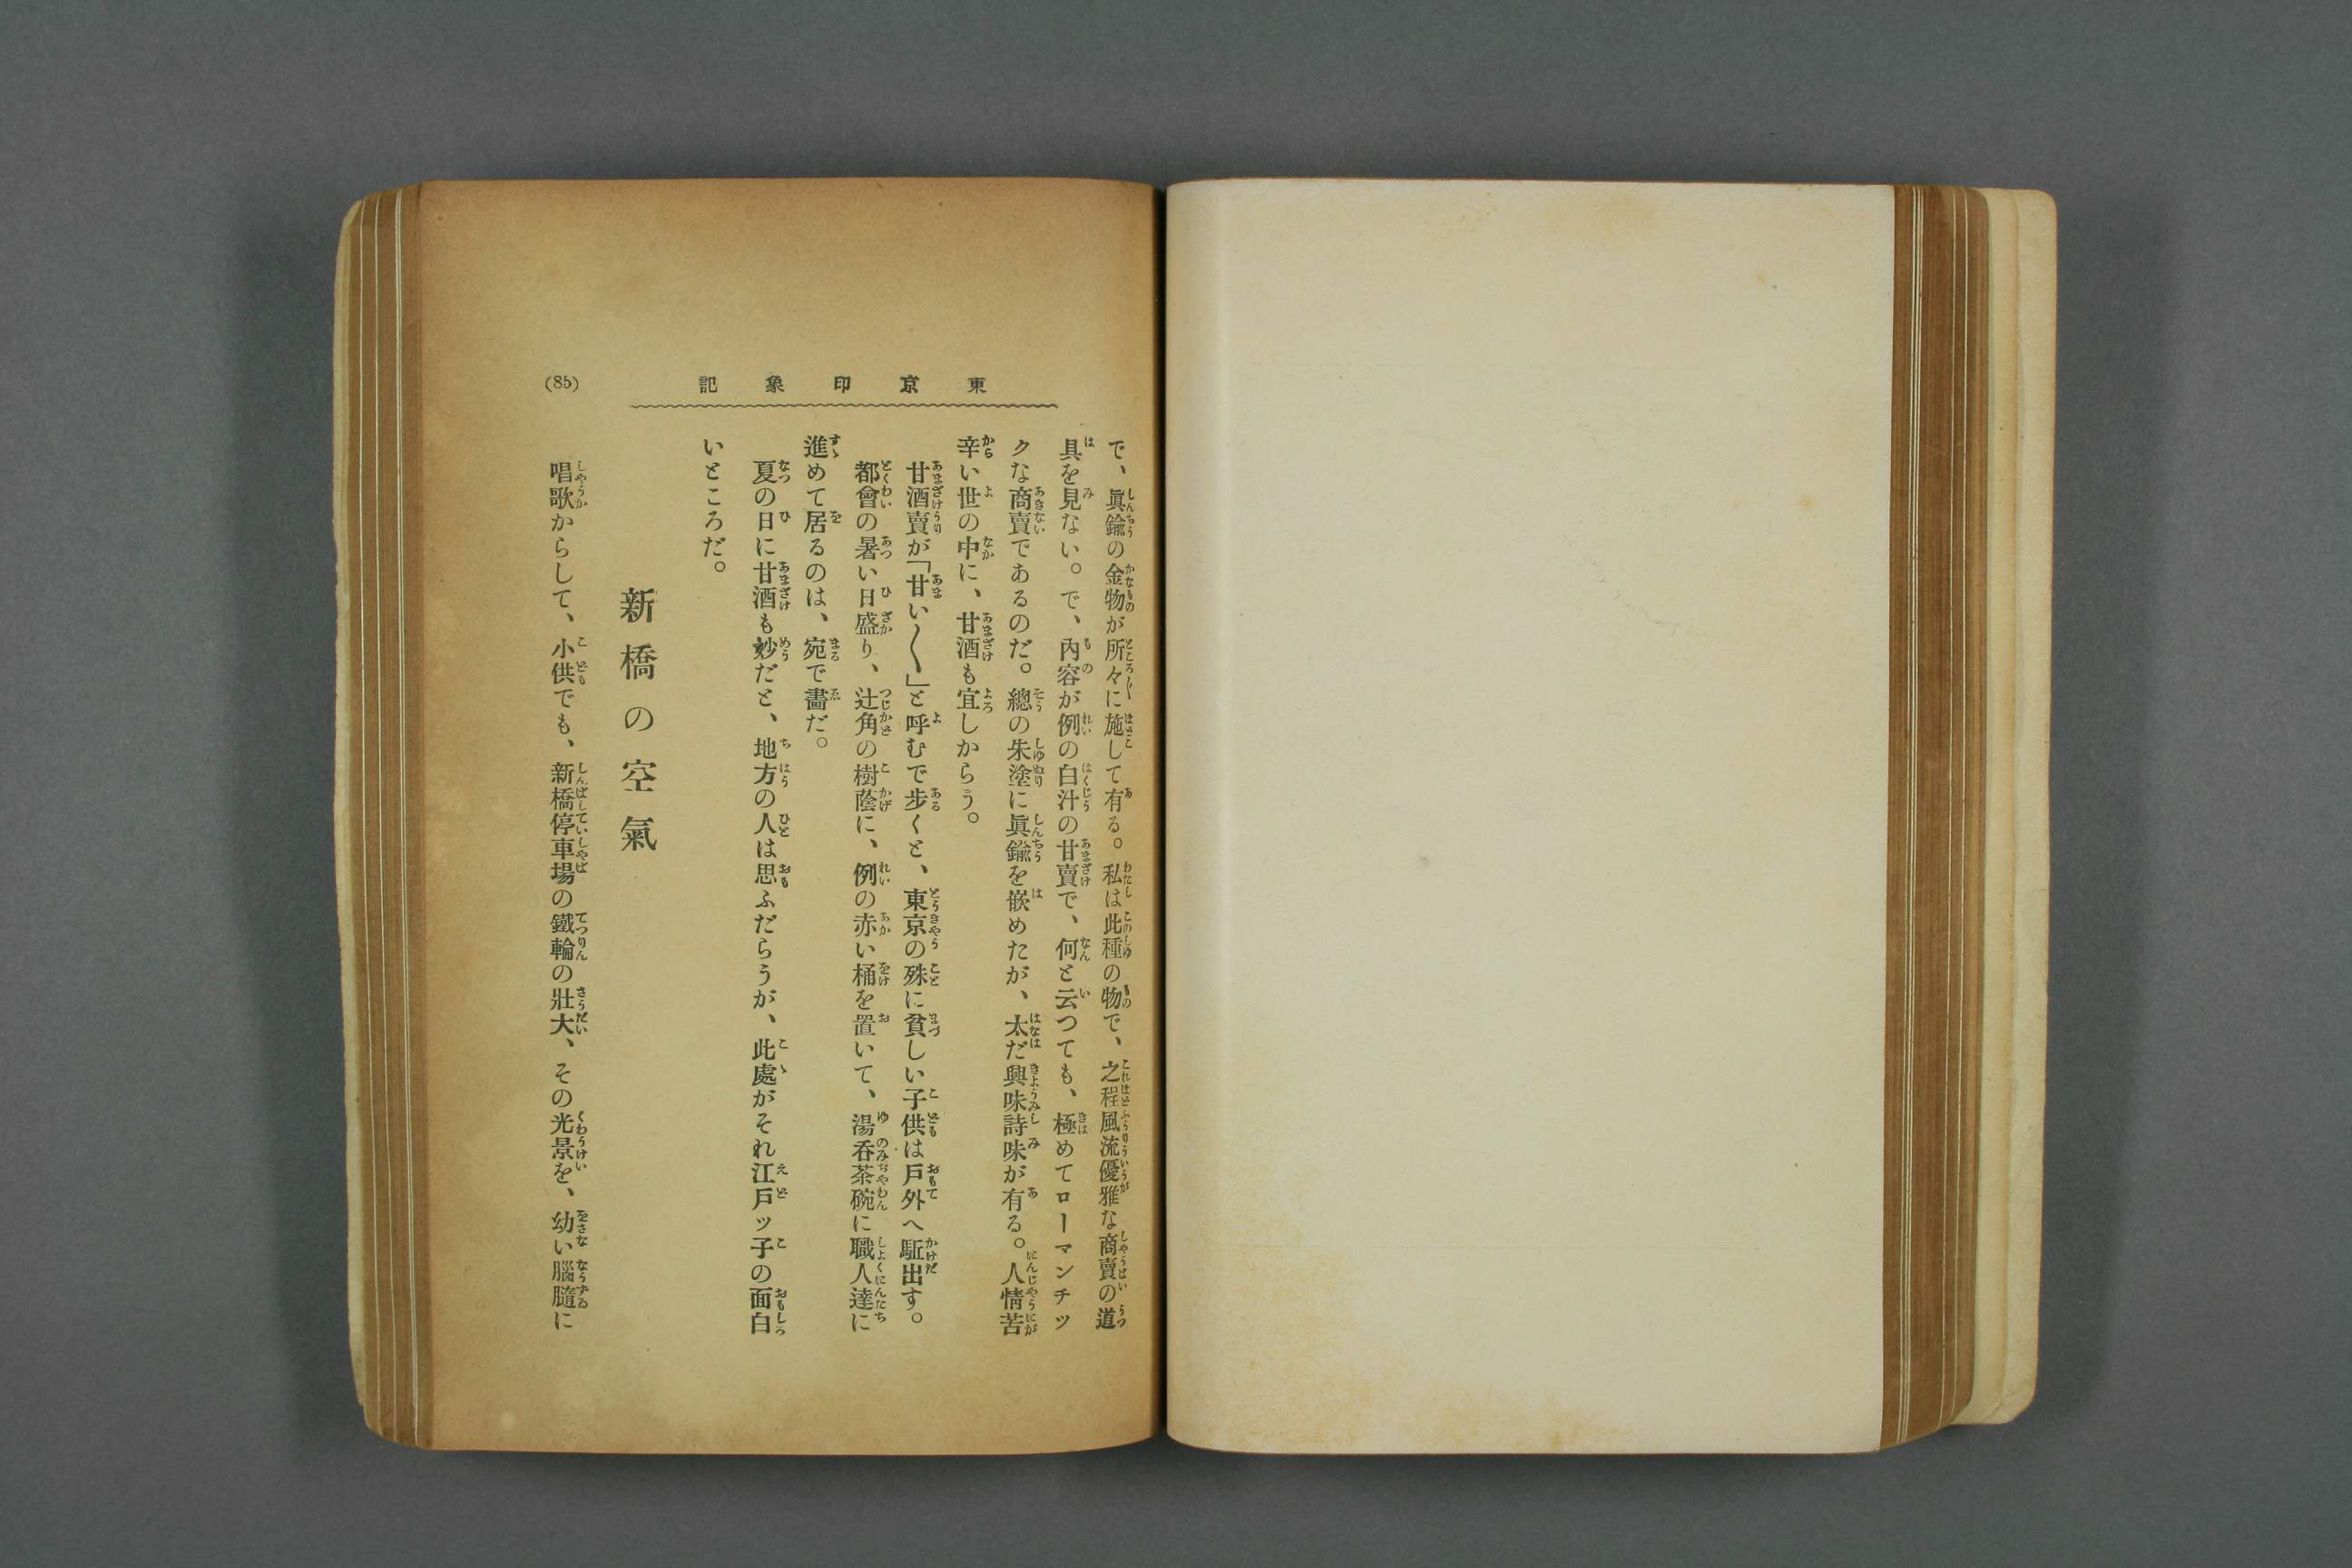 東京印象記
(85)
で、眞鍮の金物が所々に施して有る。私は此種の物で、之程風流優雅な商賣の道
具を見ない。で、內容が例の白汁の甘賣で、何と云つても、極めてローマンチッ
クな商賣であるのだ。總の朱塗に眞鍮を嵌めたが、太だ興味詩味が有る。人情苦
辛い世の中に、甘酒も宜しからう。
甘酒賣が「甘い〱」と呼むで步くと、東京の殊に貧しい子供は戶外へ駈出す。
都會の暑い日盛り、辻角の樹蔭に、例の赤い桶を置いて、湯呑茶碗に職人達に
進めて居るのは、宛で畵だ。
夏の日に甘酒も妙だと、地方の人は思ふだらうが、此處がそれ江戶ッ子の面白
いところだ。
新橋の空氣
唱歌からして、小供でも、新橋停車場の鐵輪の壯大、その光景を、幼い腦髓に